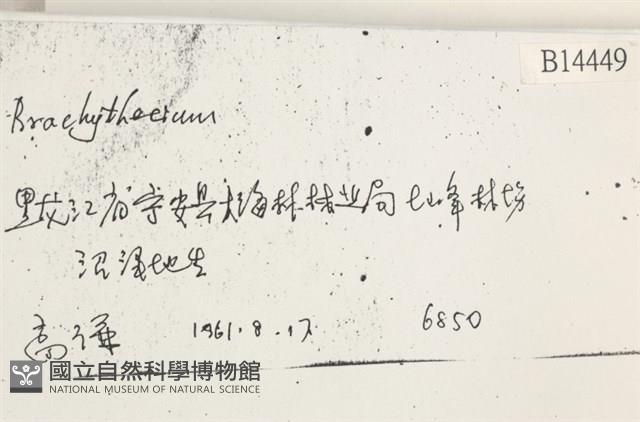 B14449
Brachythecium
黑龙江省宁安县大海林林业局七峰林场
沼泽地生
高谦 1961.8.17. 6850
國立自然科學博物館
NATIONAL MUSEUM OF NATURAL SCIENCE